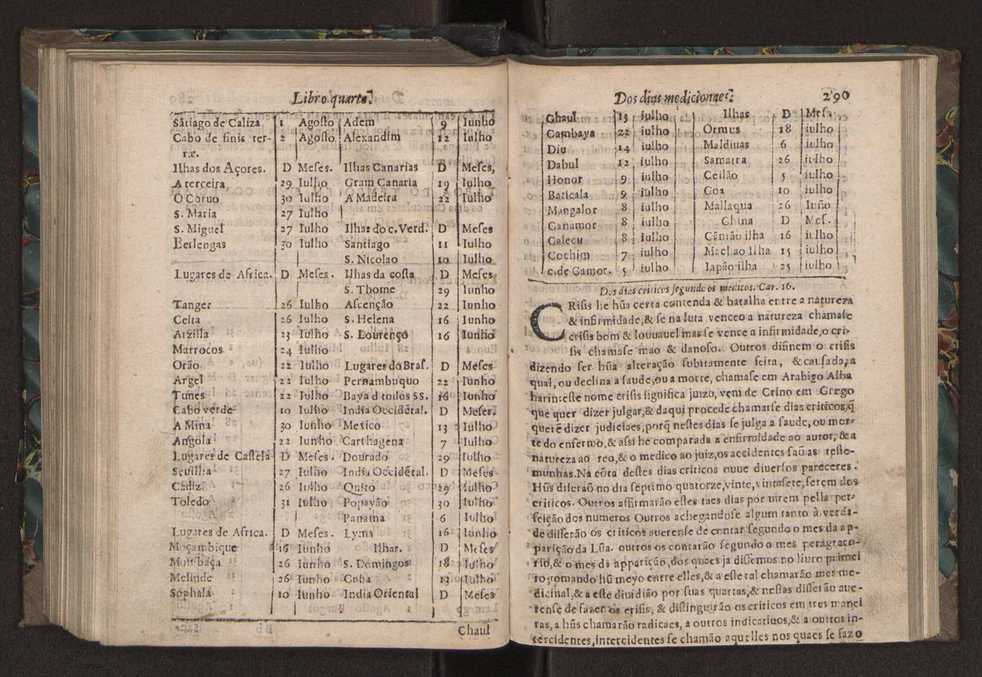 Libro quarto.
Sãtiago de Caliza 1 Agosto Adem 9 Iunho
Cabo de finis ter- 2 Agosto Alexandim 12 Iulho
ræ.
Ilhas dos Açores. D Meses. Ilhas Canarias D Meses,
A terceira, 29 Iulho Gram Canaria 19 Iulho
O Coruo 30 Iulho A Madeira 22 Iulho
S. Maria 27 Iulho
S. Miguel 27 Iulho Ilhas do c. Verd. D Meses
Berlengas 30 Iulho Santiago 11 Iulho
S. Nicolao 10 Iulho
Lugares de Africa. D Meses. Ilhas da costa D Meses
S. Thome 29 Iunho
Tanger 26 Iulho Ascenção 22 Iunho
Ceita 26 Iulho S. Helena 16 Iunho
Arzilla 23 Iulho S. Lourenço 16 Iunho
Marrocos 24 Iulho
Orão 22 Iulho Lugares do Bras. D Meses
Argel 22 Iulho Pernambuquo 22 Iunho
Tunes 22 Iulho Baya d todos SS. 16 Iunho
Cabo verde 10 Iulho India Occidẽtal. D Meses.
A Mina 30 Iunho Mexico 13 Iulho
Angola 22 Iunho Carthagena 7 Iulho
Lugares de Castelã D Meses. Dourado 29 Iulho
Seuilha 27 Iulho India Occidẽtal. D Meses
Cadiz 26 Iulho Quito 29 Iulho
Toledo 31 Iulho Popayão 30 Iulho
Panama 6 Iulho
Lugares de Africa. D Meses. Lyma 16 Iunho
Moçambique 16 Iunho Ilhas. D Meses
Mombaça 26 Iunho S. Domingos 18 Iulho
Melinde 26 Iunho Cuba 19 Iulho
Sophala 10 Iunho India Oriental D Meses
Chaul
Dos dias medicionaes. 290
Chaul 13 iulho Ilhas D Mes.
Cambaya 22 iulho Ormus 18 iulho
Diu 14 iulho Maldiuas 6 iulho
Dabul 12 iulho Samatra 26 iulho
Honor 9 iulho Ceilão 5 iulho
Baticala 9 iulho Goa 10 iulho
Mangalor 8 iulho Mallaqua 26 Iuño
Canamor 8 iulho China D Mes.
Calecu 8 Iulho Cãntão ilha 16 iulho
Cochim 7 iulho Machao ilha 15 iulho
c. de Gamor. 5 iulho Iapão ilha 25 iulho
Dos dias criticos segundo os medicos. Car. 16.
CRisis he hũs certa contenda & batalha entre a natureza
& infirmidade, & se na luta venceo a natureza chamase
crisis bom & louuauel mas se vence a infirmidade, o cri-
sis chamase mao & danoso. Outros difinem o crisis
dizendo ser hũa alteração subitamente feita, & causada, a
qual, ou declina a saude, ou a morte, chamase em Arabigo Alba
harin: este nome crisis significa juizo, vem de Crino em Grego
que quer dizer julgar, & daqui procede chamarse dias criticos, q̃
quer ẽ dizer judiciaes, porq̃ nestes dias se julga a saude, ou mor-
te do enfermo, & assi he comparada a enfirmidade ao autor, & a
natureza ao reo, & o medico ao juiz, os accidentes saõ as testo-
munhas. Na cõta destes dias criticos ouue diuersos pareceres.
Hũs diserão no dia septimo quatorze, vinte, vintasete, serem dos
criticos. Outros affirmarão estes taes dias por virem pella per-
feição dos numeros Outros achegandose algum tanto à verda-
de disserão os criticos auerense de contar segundo o mes da ap-
parição da Lũa. outros os contarão segundo o mes peragrato-
rio, & o mes da apparição, dos quaes ja dissemos no liuro primei
ro, tomando hũ meyo entre elles, & a este tal chamarão mes me-
dicinal, & a este diuidião por suas quartas, & nestas disserão aue-
rense de fazer os crisis, & distinguirão os criticos em tres manei
ras, a hũs chamarão radicaes, a outros indicatiuos, & a outros in-
tercidentes, intercidentes se chamão aquelles nos quaes se fazo